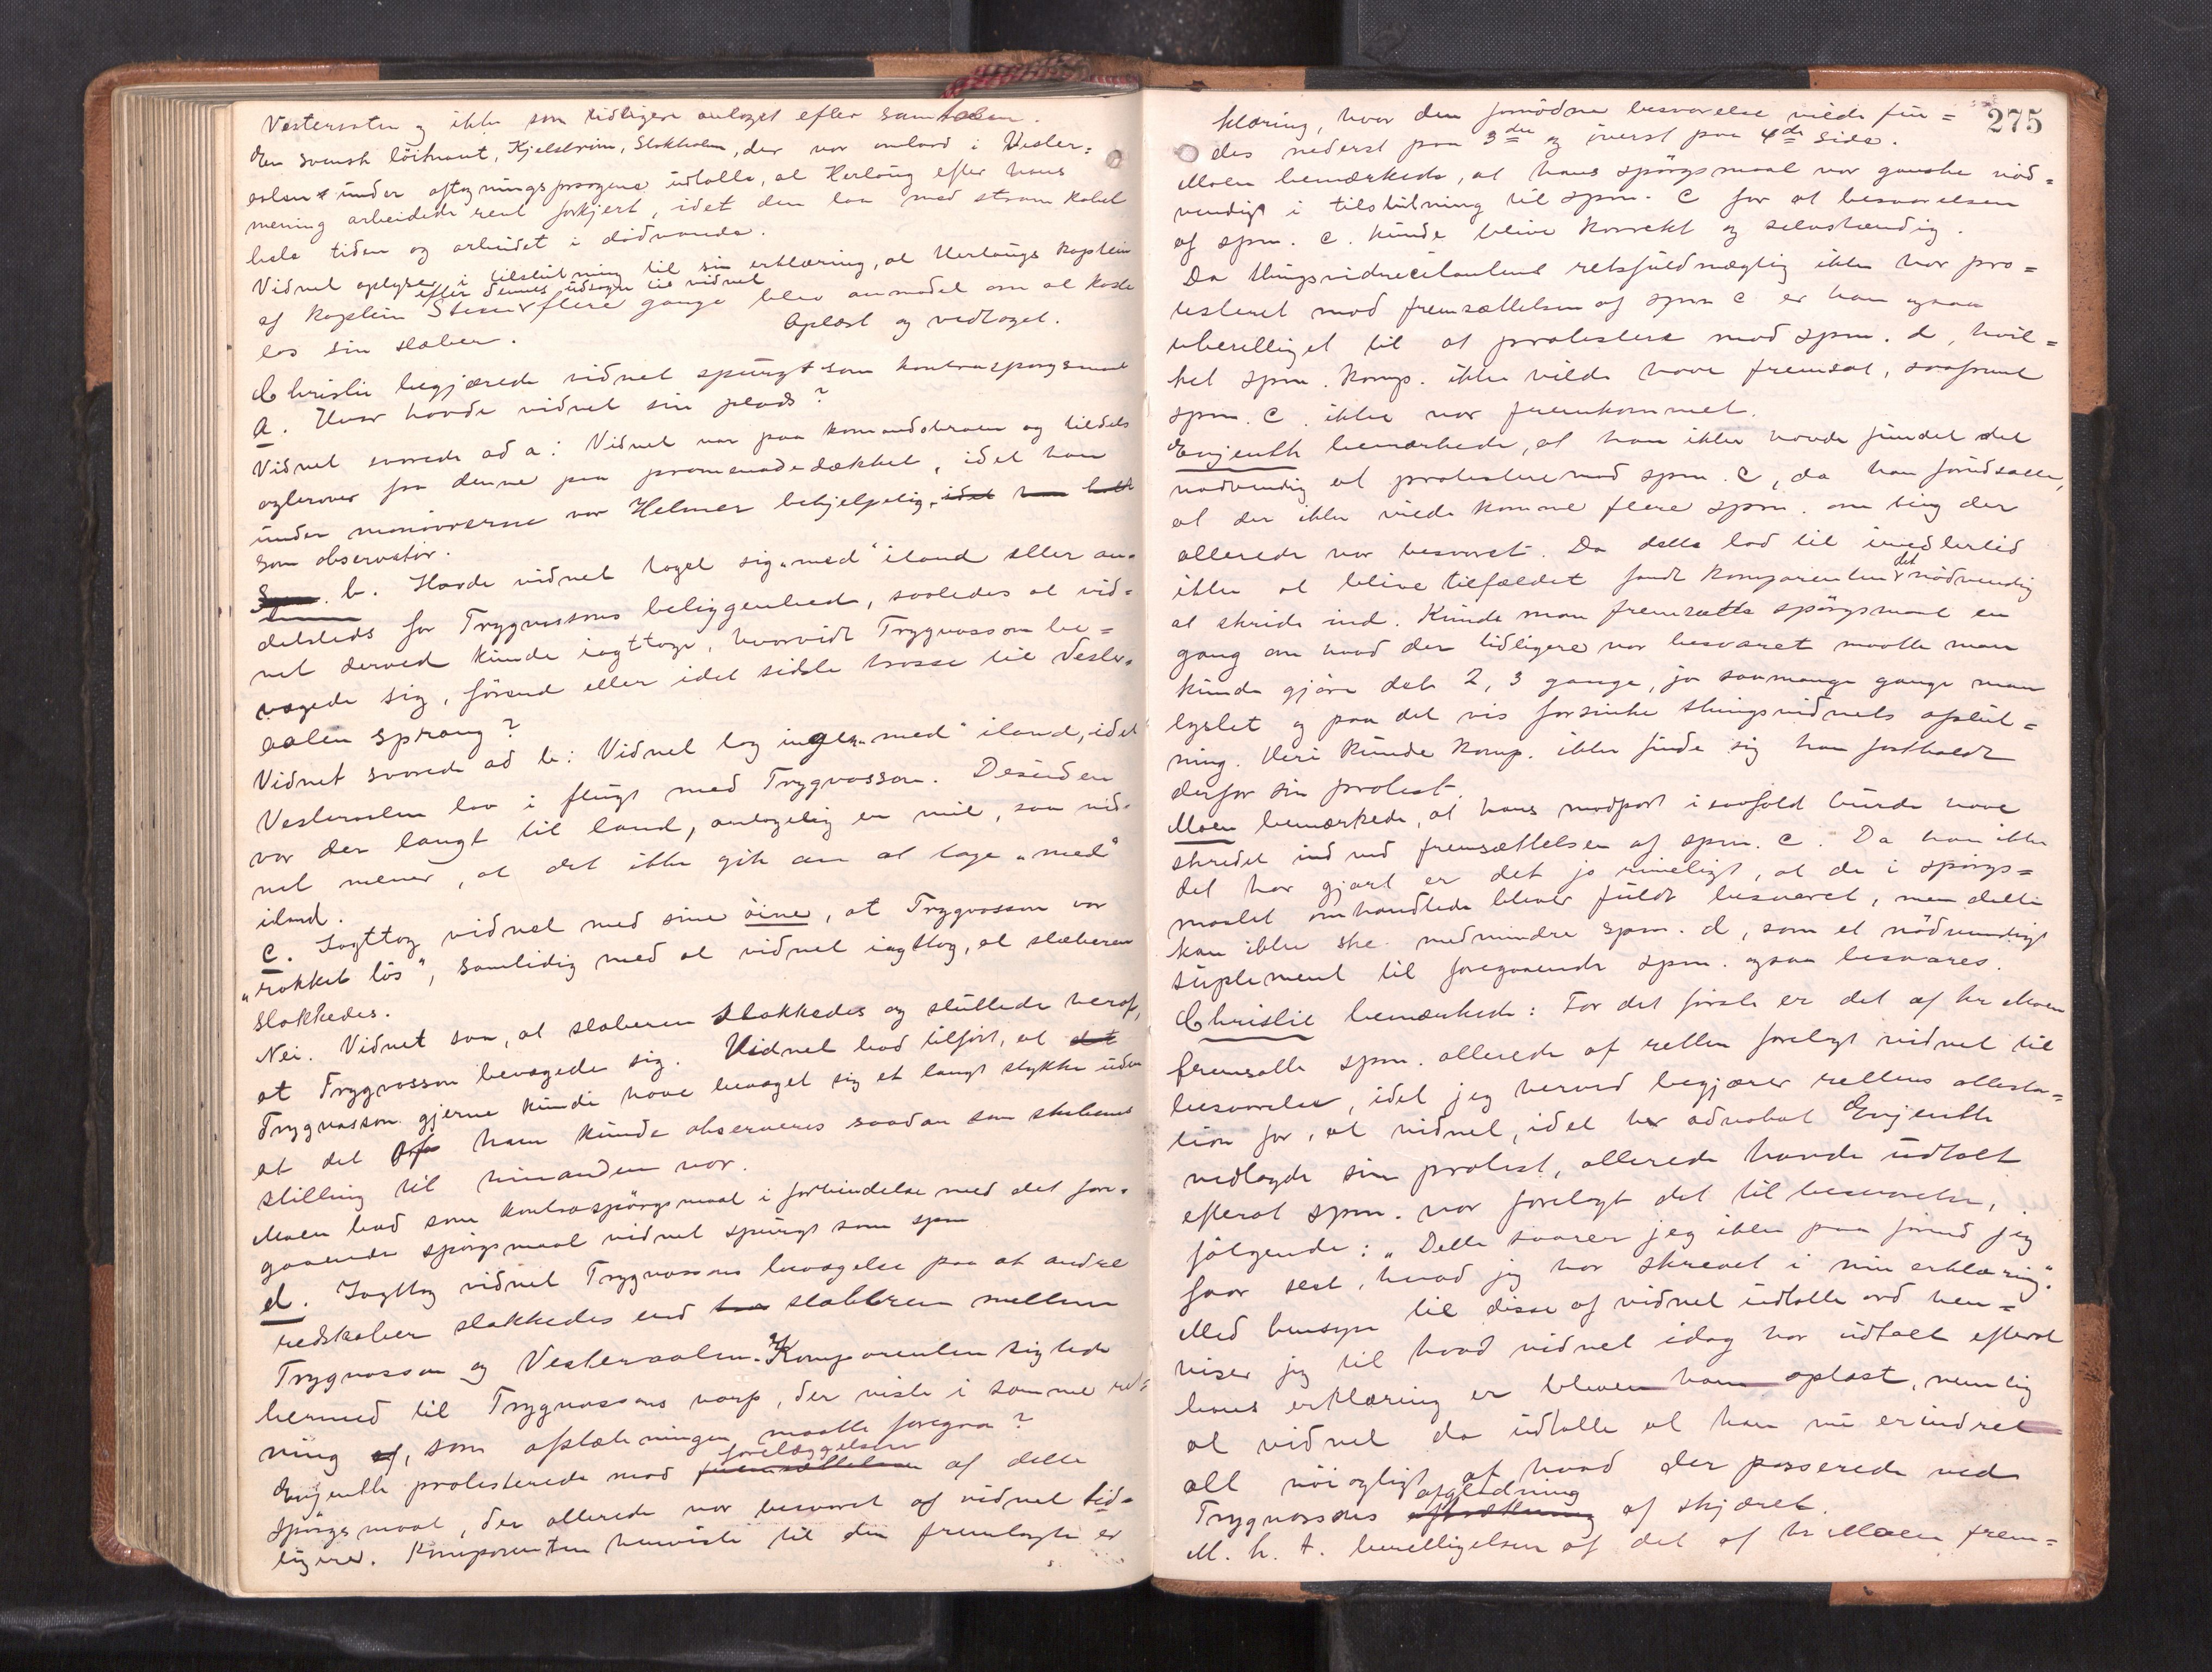 Vesteraalen og ikke som tidligere antaget efter samtalen.
En svensk löitnant, Kjelström, Stokholm, der var ombord i Vester=
aalen under aftagningsprøvene udtalte, at Herlaug efter hans
mening arbeidede rent forkjert, idet den laa med stram kabel
hele tiden og arbeidet i dödvande.
Vidnet oplyser i tilslutning til sin erklæring, at Herlaugs kaptein
efter dennes udsagn til vidnet
af kaptein Steen flere gange blev anmodet om at kaste
los sin slæber. Oplæst og vedtaget.
Christie begjærede vidnet spurgt som kontraspørgsmaal
a. Hvor havde vidnet sin plads?
Vidnet svarede ad a: Vidnet var paa komandobroen og tildels
agterover fra denne paa promenadedækket, idet han
under manövrerne var Helmer behjelpelig, idet han holdt
som observatör.
Spm. b. Havde vidnet taget sig „med“ iland eller an=
detsteds for Trygvassons beliggenhed, saaledes at vid=
net derved kunde iagttage, hvorvidt Trygvasson be=
vægede sig, förend eller idet sidste trosse til Vester=
aalen sprang?
Vidnet svarede ad b: Vidnet tog ingen „med“ iland, idet
Vesteraalen laa i flugt med Trygvasson. Desuden
var der langt til land, antagelig en mil, saa vid=
net mener, at det ikke gik an at tage „med“
iland.
c. Iagttog vidnet med sine öine, at Trygvasson var
„rokket lös“, samtidig med at vidnet iagttog, at slæberen
slakkedes.
Nei. Vidnet saa, at slæberen slakkedes og sluttede heraf,
at Trygvasson bevægede sig. Vidnet bad tilfört, at det
Trygvasson gjerne kunde have bevæget sig et langt stykke uden
at det af ham kunde observeres saadan som skibenes
stilling til hinanden var.
Moen bad som kontraspörgsmaal i forbindelse med det fore=
gaaende spörgsmaal vidnet spurgt som spm
d. Iagttog vidnet Trygvassons bevægelse paa at andre
redskaber slakkedes end slæberen mellem
Trygvasson og Vesteraalen. Komparenten sigtede
hermed til Trygvassons varp, der viste i samme ret=
ning, som afslæbningen maatte foregaa?
forelæggelsen
Enjenth protesterede mod fremsættelsen af dette
spörgsmaal, der allerede var besvaret af vidnet tid=
ligere. Komparenten henviste til den fremlagte er
275
klæring, hvor den fornödne besvarelse vilde fin=
des nederst paa 3die og överst paa 4de side.
Moen bemærkede, at hans spörgsmaal var ganske nöd=
vendigt i tilslutning til spm. c for at besvarelsen
af spm. c. kunde blive korrekt og selvstændig.
Da thingsvidnecitantens retsfuldmægtig ikke har pro=
testeret mod fremsættelsen af spm c er han ogsaa
uberettiget til at protestere mod spm. d, hvil=
ket spm. komp. ikke vilde have fremsat, saafremt
spm. c. ikke var fremkommet.
Enjenth bemærkede, at han ikke havde fundet det
nödvendig at protestere mod spm. c, da han forudsatte,
at der ikke vilde komme flere spm. om ting der
allerede var besvaret. Da dette lod til imidlertid
det
ikke at blive tilfældet fandt komparenten nödvendig
at skride ind. Kunde man fremsætte spörgsmaal en
gang om hvad der tidligere var besvaret maatte man
kunde gjöre det 2, 3 gange, ja saamange gange man
lystet og paa det vis forsinke thingsvidnets afslut=
ning. Heri kunde komp. ikke finde sig han fastholdt
derfor sin protest.
Moen bemærkede, at hans modpart isaafald burde have
skredet ind ved fremsættelsen af spm. c. Da han ikke
det har gjort er det jo rimeligt, at de i spörgs=
maalet omhandlede bliver fuldt besvaret, men dette
kan ikke ske medmindre spm. d, som et nödvendigt
suplement til foregaaende spm. ogsaa besvares.
Christie bemærkede: For det förste er det af hr Moen
fremsatte spm. allerede af retten forelagt vidnet til
besvarelse, idet jeg herved begjærer rettens attesta=
tion for, at vidnet, idet hr advokat Enjenth
nedlagde sin protest, allerede havde udtalt
efterat spm. var forelagt det til besvarelse,
fölgende: „Dette svarer jeg ikke paa förend jeg
faar seet, hvad jeg har skrevet i min erklæring“.
Med hensyn til disse af vidnet udtalte ord hen=
viser jeg til hvad vidnet idag har udtalt efterat
hans erklæring er bleven ham oplæst, nemlig
at vidnet da udtalte at han nu erindret
alt nöiagtigt af hvad der passerede ved
afglidning
Trygvassons af skjæret.
M. h. t. berettigelsen af det af hr Moen frem=